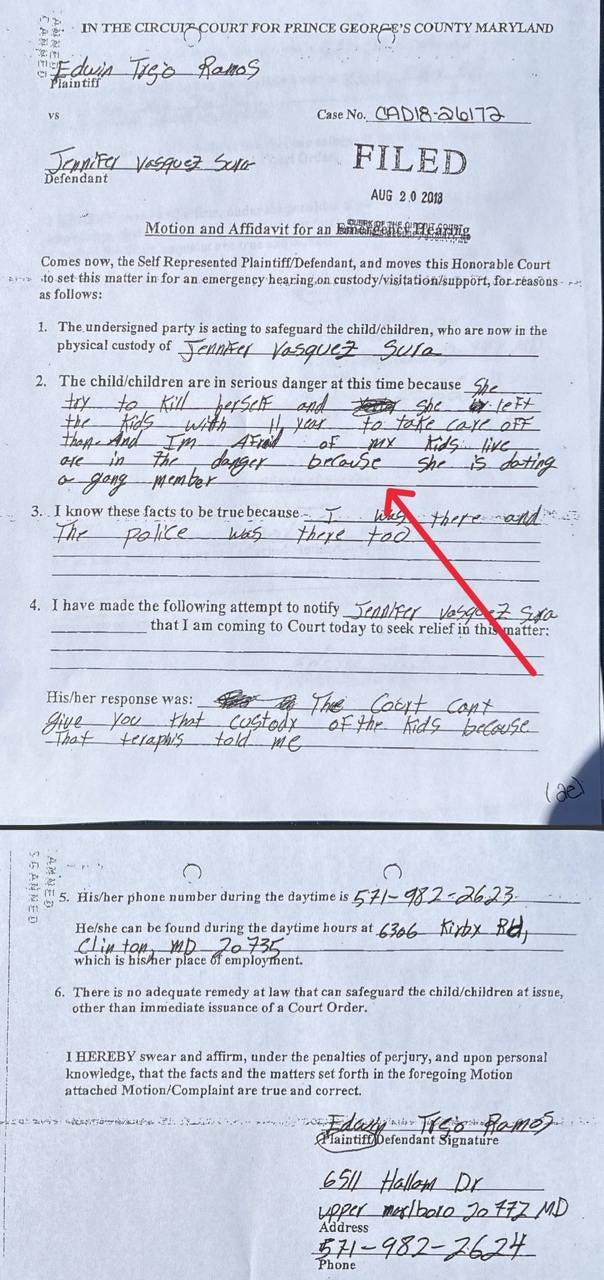 IN THE CIRCUIT COURT FOR PRINCE GEORGE'S COUNTY MARYLAND
Edwin Trejo Ramos
Plaintiff
vs
Case No. CAD18-26172
Jennifer Vasquez Sura
Defendant
FILED
AUG 20 2018
CLERK OF THE CIRCUIT COURT
Motion and Affidavit for an Emergency Hearing
Comes now, the Self Represented Plaintiff/Defendant, and moves this Honorable Court
to set this matter in for an emergency hearing on custody/visitation/support, for reasons
as follows:
1. The undersigned party is acting to safeguard the child/children, who are now in the
physical custody of Jennifer Vasquez Sura
2. The child/children are in serious danger at this time because She
try to kill herself and she left
the kids with 11 year to take care off
than. And Im Afraid of my kids live
are in the danger because she is dating
a gang member
3. I know these facts to be true because I was there and
The police was there too
4. I have made the following attempt to notify Jennifer Vasquez Sura
that I am coming to Court today to seek relief in this matter:
His/her response was: The Court cant
give you that custody of the kids because
That teraphis told me
(2e)
SCANNED
5. His/her phone number during the daytime is 571-982-2623
He/she can be found during the daytime hours at 6306 Kirby Rd,
Clinton, MD 20735
which is his/her place of employment.
6. There is no adequate remedy at law that can safeguard the child/children at issue,
other than immediate issuance of a Court Order.
I HEREBY swear and affirm, under the penalties of perjury, and upon personal
knowledge, that the facts and the matters set forth in the foregoing Motion
attached Motion/Complaint are true and correct.
Edwin Trejo Ramos
Plaintiff/Defendant Signature
6511 Hallam Dr
upper marlboro 20772 MD
Address
571-982-2624
Phone